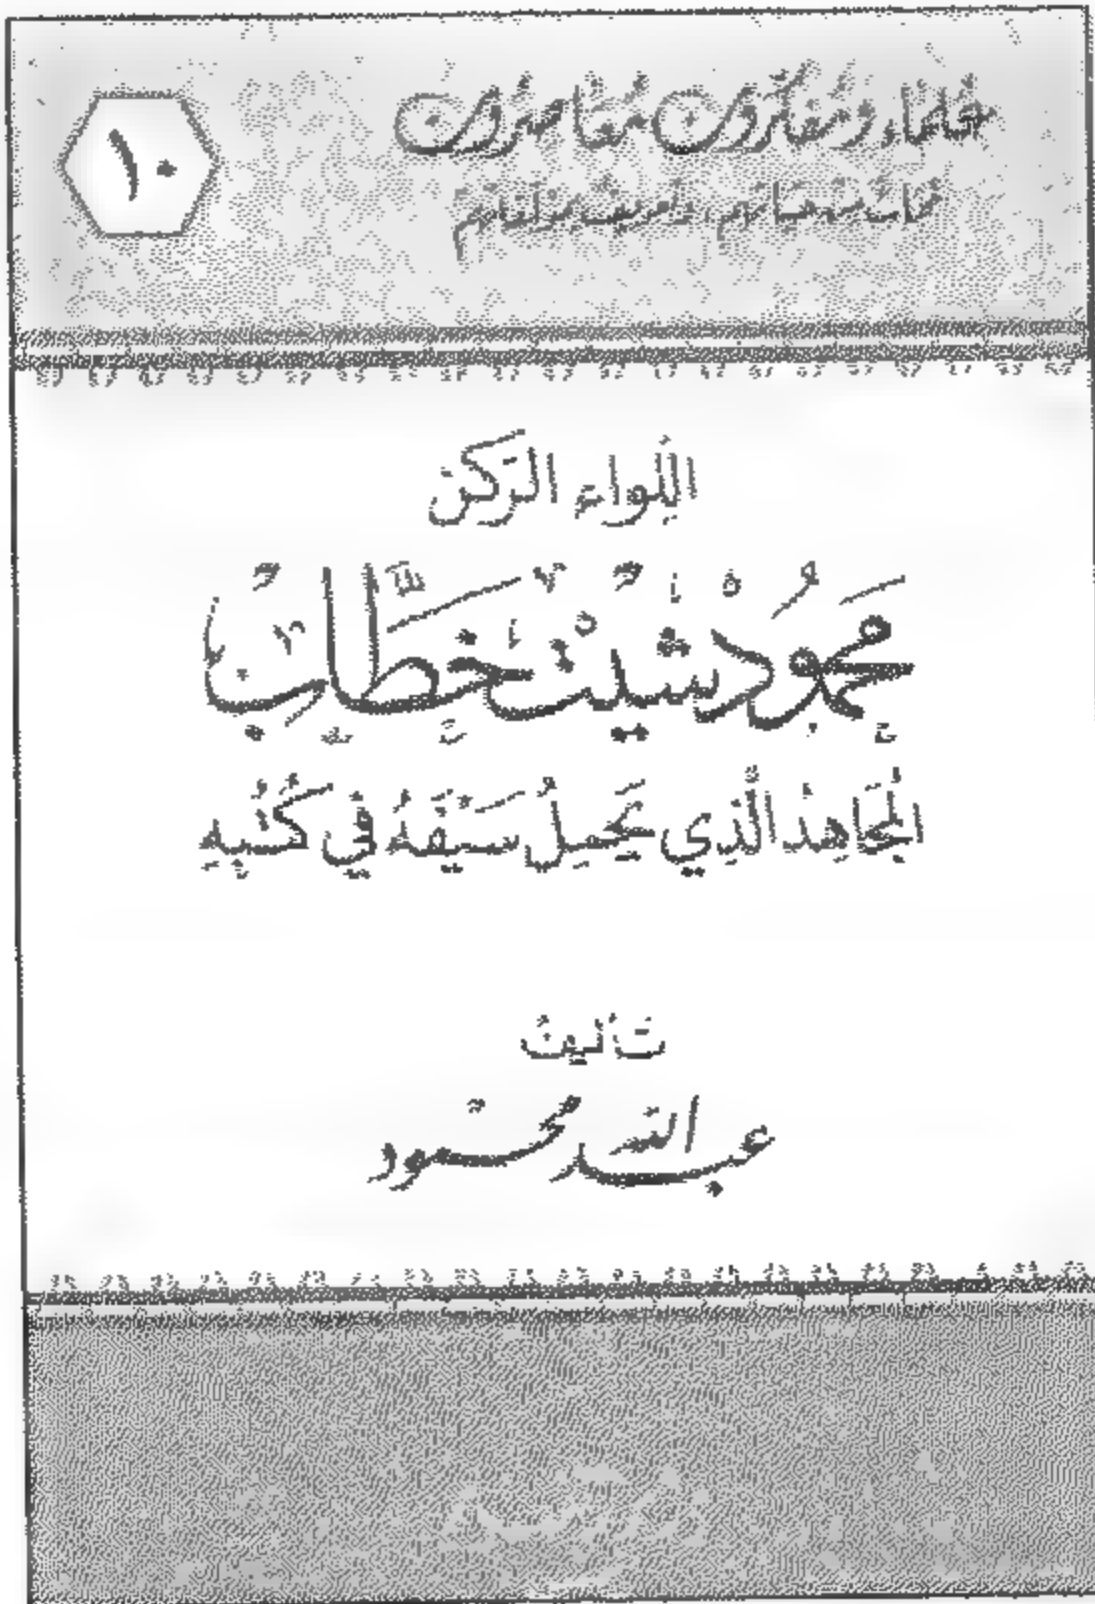 علماء ومفكرون معاصرون
لمحات من حياتهم، وتعريف بمؤلفاتهم
١٠
اللواء الركن
مَحمُود شيْت خَطَّاب
المجَاهِدُ الَّذِي يَحمِلُ سَيْفَهُ في كُتُبِهِ
تأليف
عبد الله محمود